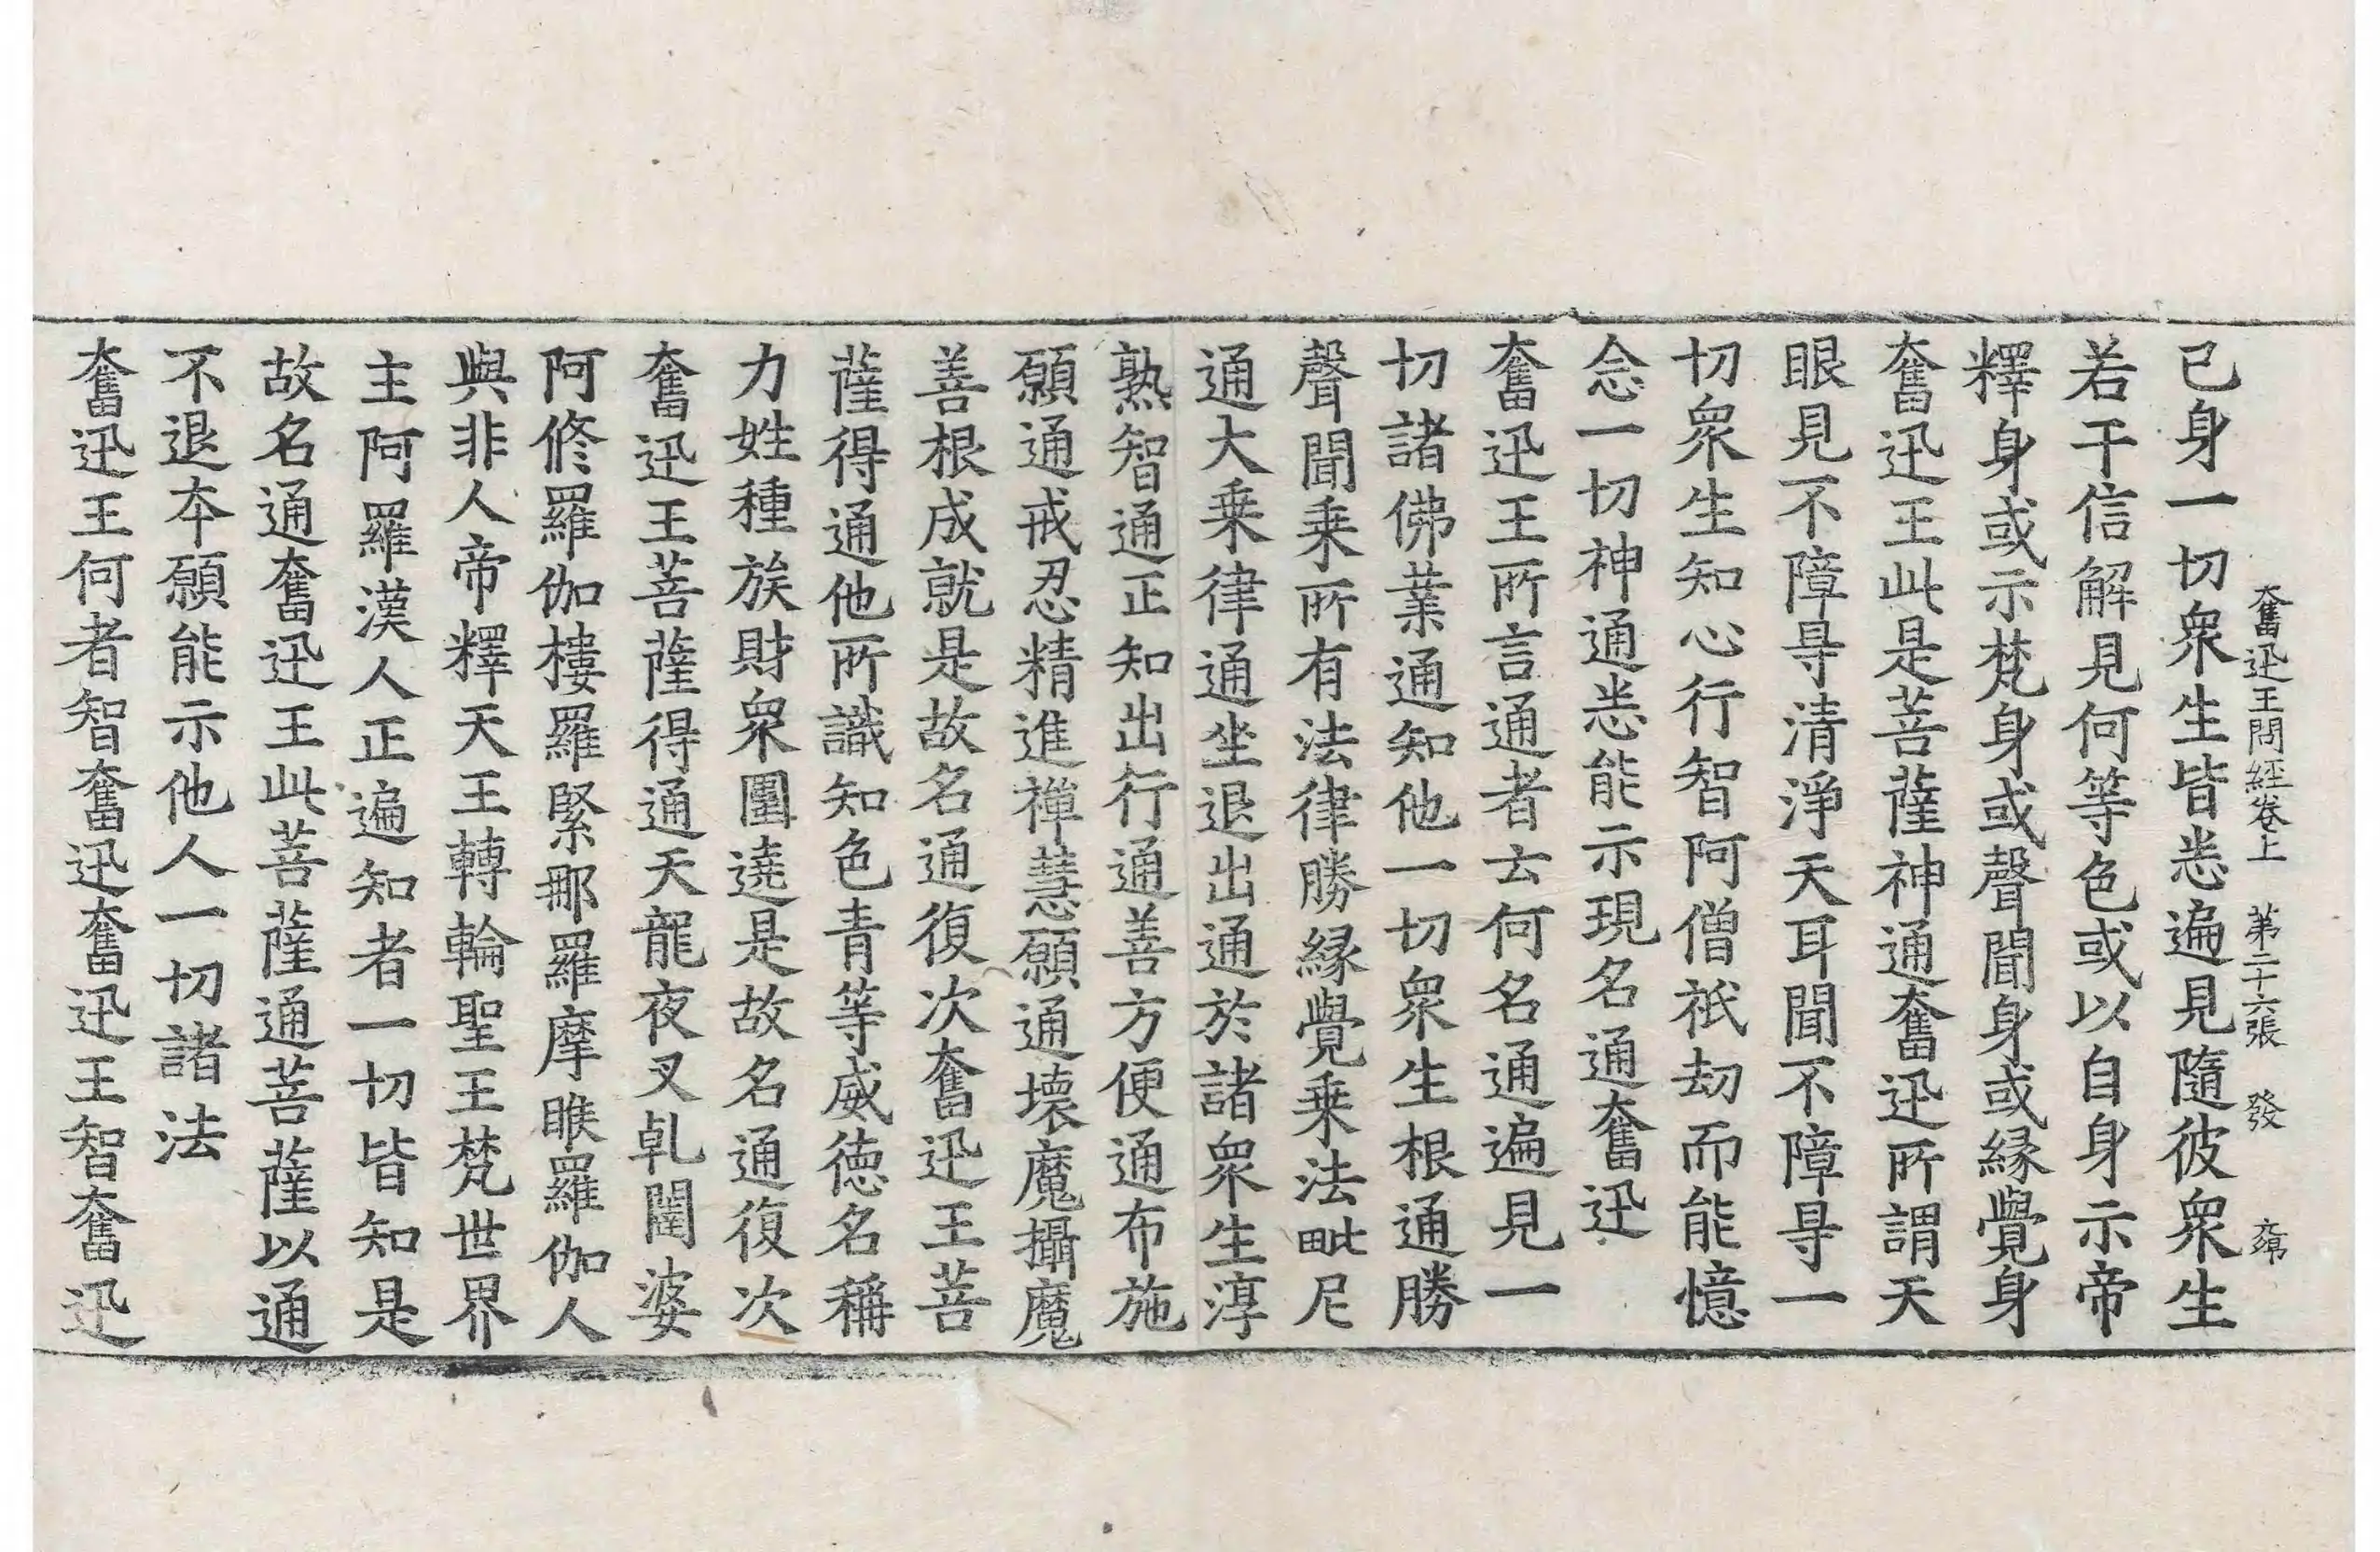 奮迅王問經卷上 第二十六張 發
已身一切衆生皆悉遍見隨彼衆生
若干信解見何等色或以自身示帝
釋身或示梵身或聲聞身或縁覺身
奮迅王此是菩薩神通奮迅所謂天
眼見不障㝵清淨天耳聞不障㝵一
切衆生知心行智阿僧祇劫而能憶
念一切神通悉能示現名通奮迅
奮迅王所言通者云何名通遍見一
切諸佛業通知他一切衆生根通勝
聲聞乗所有法律勝縁覺乗法毗尼
通大乗律通坐退出通於諸衆生淳
熟智通正知出行通善方便通布施
願通戒忍精進禪慧願通壞魔攝魔
善根成就是故名通復次奮迅王菩
薩得通他所識知色青等威徳名稱
力姓種族財衆圍遶是故名通復次
奮迅王菩薩得通天龍夜叉乹闥婆
阿脩羅伽樓羅緊那羅摩睺羅伽人
與非人帝釋天王轉輪聖王梵世界
主阿羅漢人正遍知者一切皆知是
故名通奮迅王此菩薩通菩薩以通
不退本願能示他人一切諸法
奮迅王何者智奮迅奮迅王智奮迅